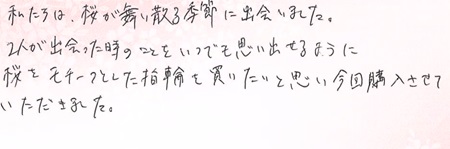 私たちは、桜が舞い散る季節に出会いました。
2人が出会った時のことをいつでも思い出せるように
桜をモチーフとした指輪を買いたいと思い今回購入させて
いただきました。